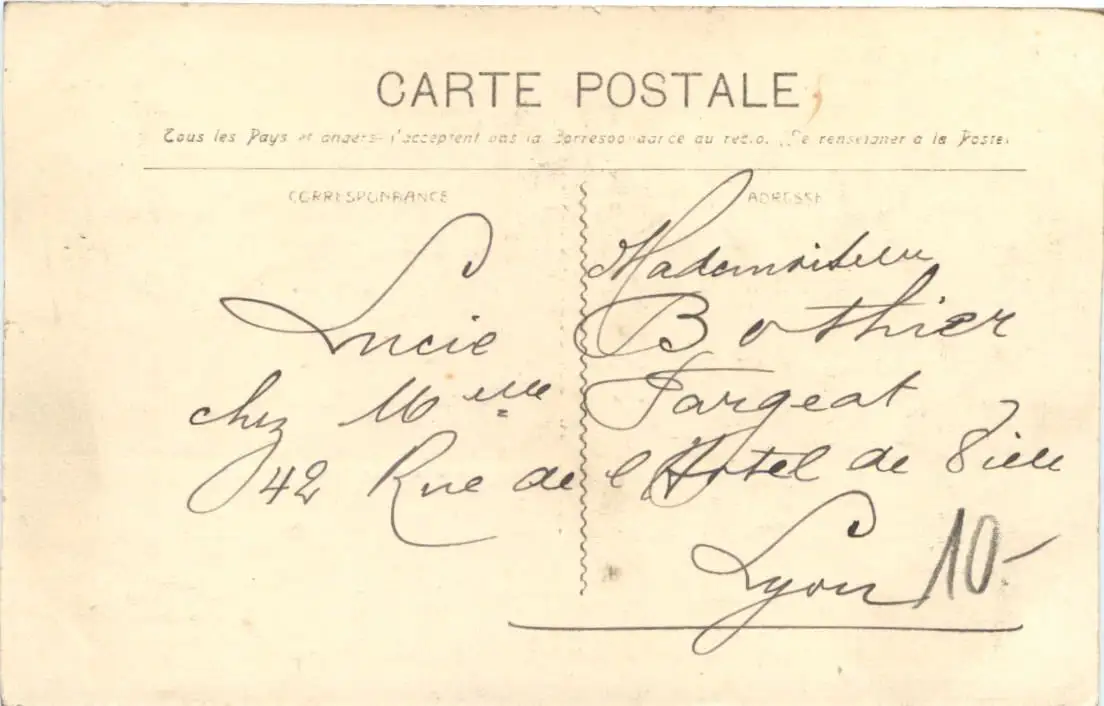 CARTE POSTALE
Tous les Pays étrangers n'acceptent pas la Correspondance au recto. (Se renseigner à la Poste)
CORRESPONDANCE
ADRESSE
Mademoiselle
Lucie Bothier
chez Melle Fargeat
42 Rue de l'Hotel de Ville
Lyon
10-